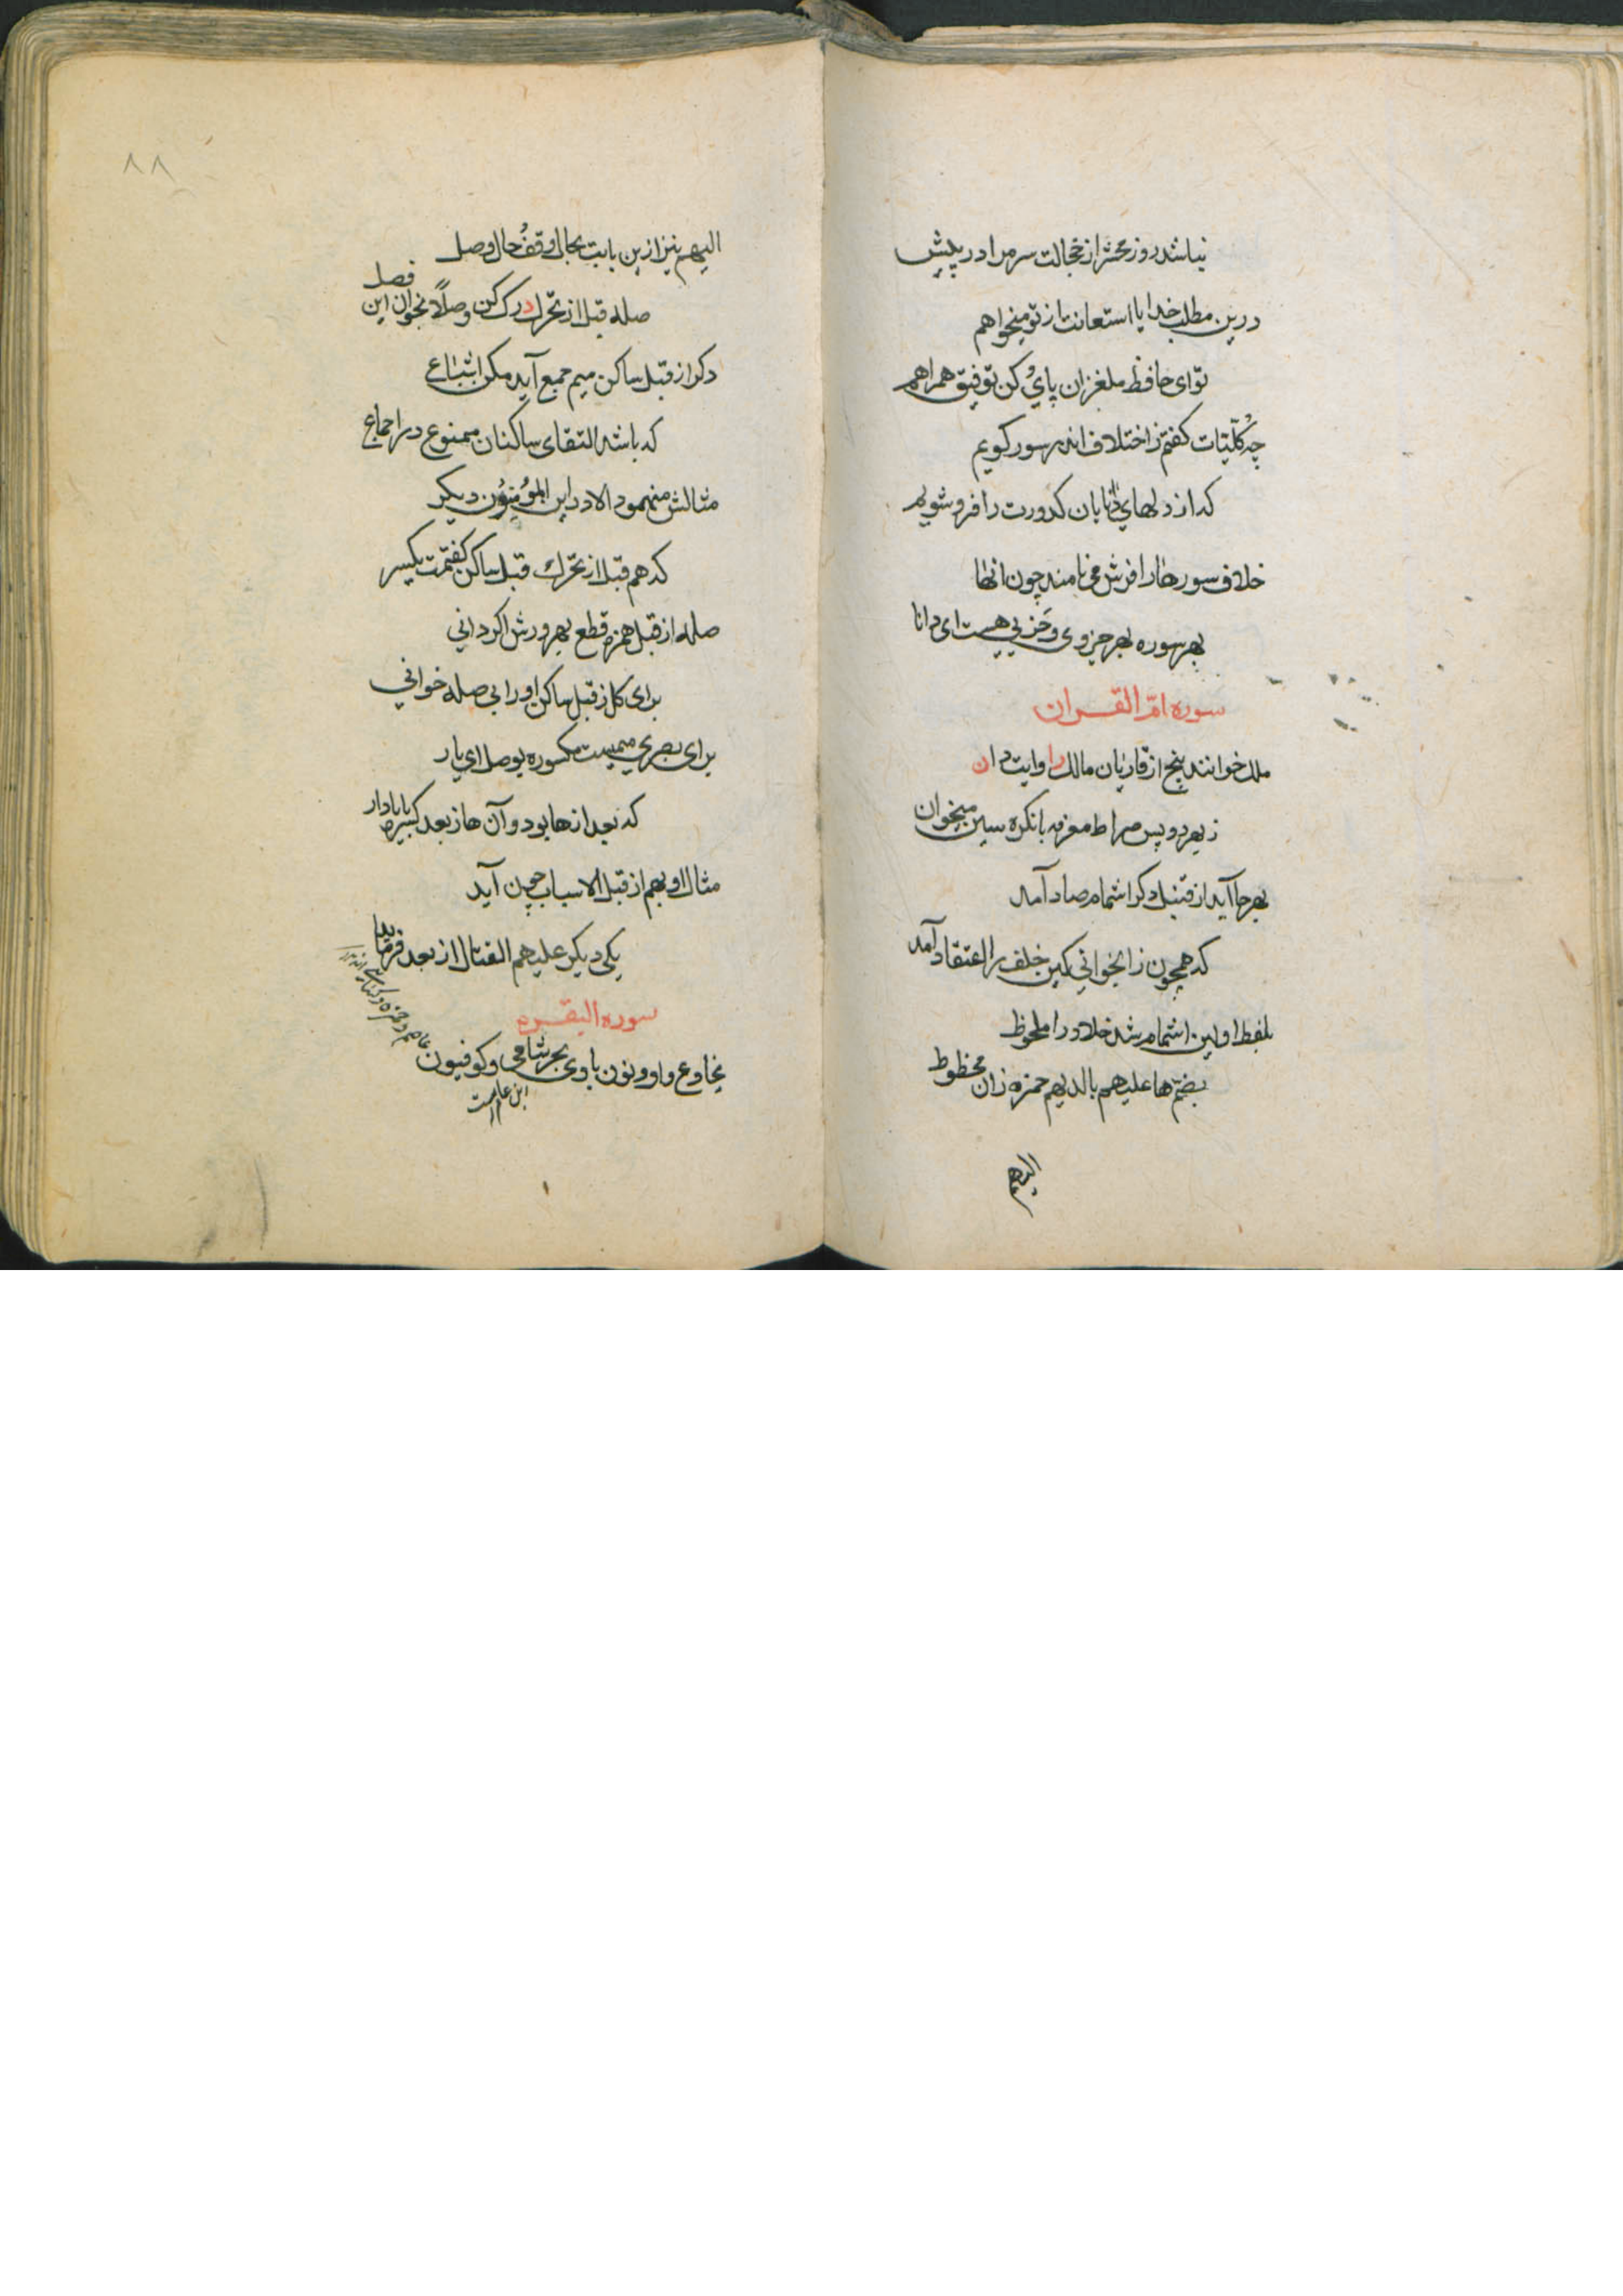 نباشد روز محشر از خجالت سر مرا در پیش
درین مطلب خدایا استعانت از تو میخواهم
تو ای حافظ ملغزان پای و کن توفیق همراهم
چه کلّیّات کفتم ز اختلاف اندر سور کویم
که از دلهای نابان کدورت را فرو شویم
خلاف سورها را فرش می نامند چون انها
بهر سوره بهر جزوی و حزبی هست ای دانا
سوره امّ القــران
ملک خوانند پنج از قاریان مالک را وایت دان
زبهر دو پس صراط معرفه با نکره سین میخوان
بهر جا آید از قنبل دکر اشمام صاد آمد
که همچون زا بخوانی کین خلف را اعتقاد آمد
بلفظ اولین اشمام شد خلاد را ملحوظ
بضمّ ها علیهم با لدیهم حمزه زان محظوظ
الیهم
۸۸
الیهم نیز ازین بابت بحال وقف و حال وصل
صله قبل از تحرّک درک کن وصلاً بخوان این فصل
دکر از قبل ساکن میم جمع آید مکن اشباع
که باشد التقای ساکنان ممنوع در اجماع
مثالش منهمو دالا در این المؤمنون دیکر
که هم قبل از تحرّک قبل ساکن کفتمت یکسر
صله از قبل همزه قطع بهر ورش اکر دانی
برای کل ز قبل ساکن او را بی صله خوانی
برای بصری میمیست مکسوره بوصل ای یار
که بعد از ها بود و آن ها ز بعد کسره یا یادار
مثال او بهم از قبل الاسباب چون آید
یکی دیکر علیهم القتال از بعد فرماید
سوره البقــره
یخادع واو و نون با وی بحر شامی و کوفیون
ابن عامرست
عاصم و حمزه و کسائی اند